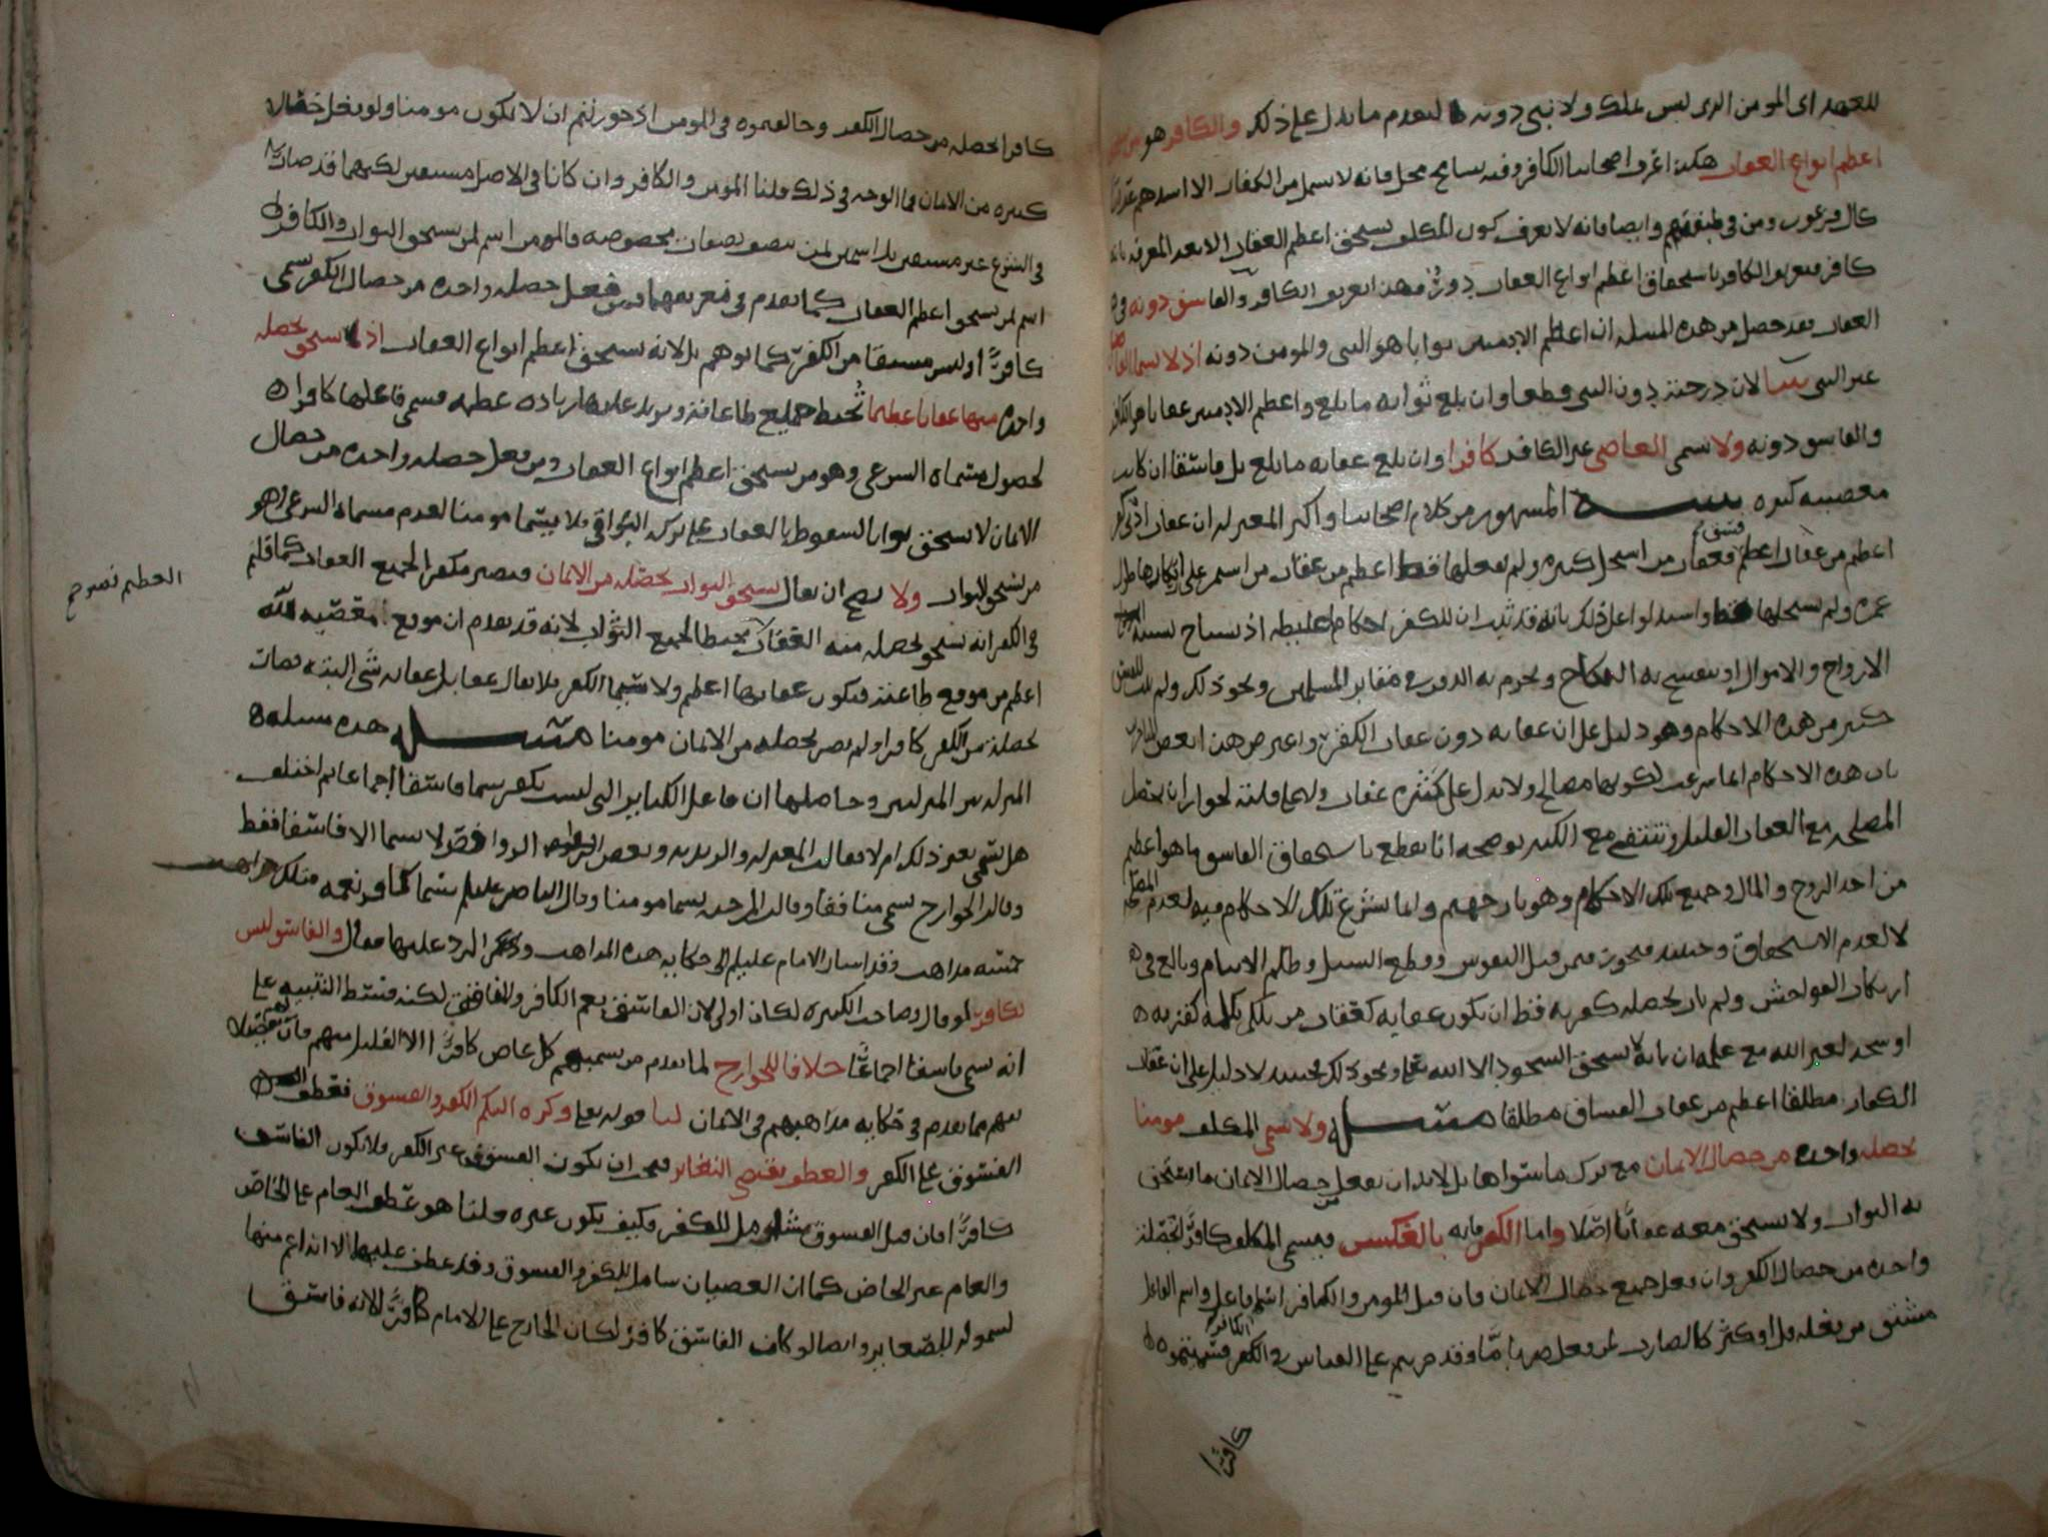 للعهد اى المومن الذى ليس بملك ولا نبى دونه لتعدم ما يدل على ذلك والكافر هو من
اعظم انواع العقاب هكذا اصحابنا الكافر وفيه تسامح فانه لا يشمل من الكفار الا اشدهم عقابا
كالفرعون ومن فى طبقتهم وايضا فانه لا يعرف كون المكلف يستحق اعظم العقاب الا بعد المعرفه بانه
كافر فتعريف الكافر باستحقاق اعظم انواع العقاب دور فهذا تعريف الكافر والفاسق دونه فى
العقاب فقد حصل من هذه المسله ان اعظم الادميين ثوابا هو النبى والمومن دونه اذ لا يسما
غير النبى نبيا لان درجته دون النبى قطعا وان بلغ ثوابه ما بلغ واعظم الادميين عقابا هو الكافر
والفاسق دونه ولا يسمى العاصى غير الكافر كافرا وان بلغ عقابه ما بلغ بل فاسقا ان كانت
معصيته كبيره تنبيه المشهور من كلام اصحابنا واكثر المعتزله ان عقاب
اعظم من عقاب فسق فعقاب من استحل كبيره ولم يفعلها فقط اعظم من عقاب من استمر على ارتكابها طول
عمره ولم يستحلها واستدلوا على ذلك بانه قد ثبت ان للكفر احكام غليظه اذ تستباح بسببه
الارواح والاموال وينفسخ به النكاح ويحرم به الدفن فى مقابر المسلمين ونحو ذلك ولم يثبت للفسق
كثير من هذه الاحكام وهو دليل على ان عقابه دون عقاب الكفر واعترض هذا بعض
بان هذه الاحكام انما شرعت لكونها مصالح ولا تدل على كثره عقاب ولا على قلته لجواز ان تحصل
المصلحه مع العقاب القليل وتنتفى مع الكثير يوضحه انا نقطع باستحقاق الفاسق ما هو اعظم
من اخذ الروح والمال وجميع تلك الاحكام وهو نار جهنم وانما لم تشرع تلك الاحكام فيه لعدم المصلحه
لا لعدم الاستحقاق وحينئذ فيجوز فيمن قتل النفوس وقطع السبيل وظلم الايتام وبالغ فى
ارتكاب الفواحش ولم يات بخصله كفريه قط ان يكون عقابه كعقاب من تكلم بكلمه كفريه
او سجد لغير الله مع علمه بانه لا يستحق السجود الا الله تعالى ونحو ذلك فحينئذ لا دليل على ان عقاب
الكفار مطلقا اعظم من عقاب الفساق مطلقا مسله ولا يسمى المكلف مومنا
بخصله واحده من خصال الايمان مع ترك ما سواها بل لا بد ان يفعل من خصال الايمان ما يستحق
به الثواب ولا يستحق معه عقابا اصلا واما الكفر فانه بالعكس فيسمى المكلف كافرا بخصله
واحده من خصال الكفر وان فعل جميع خصال الايمان فان قيل المومن والكافر اسما فاعل واسم الفاعل
مشتق من يفعله قل او كثر كالضارب لمن فعل ضربا ما وقد جريتم على القياس فى الكافر فسميتموه
كافرا
كافرا بخصله من خصال الكفر وخالفتموه فى المومن اذ جوزتم ان لا يكون مومنا ولو يفعل خصال
كثيره من الايمان فما الوجه فى ذلك قلنا المومن والكافر وان كانا فى الاصل مشتقين لكنهما قد صارا
فى الشرع غير مشتقين بل اسمين لمن يتصف بصفات مخصوصه فالمومن اسم لمن يستحق الثواب والكافر
اسم لمن يستحق اعظم العقاب كما تقدم فى تعريفهما فمن فعل خصله واحده من خصال الكفر سمى
كافرا وليس مشتقا من الكفر كما توهم بل لانه يستحق اعظم انواع العقاب اذ يستحق بخصله
واحده منها عقابا عظيما تحبط جميع طاعاته ويزيد عليها زياده عظيمه فسمى فاعلها كافرا
لحصول مسماه الشرعى وهو من يستحق اعظم انواع العقاب ومن فعل خصله واحده من خصال
الايمان لا يستحق ثوابا لسقوطه بالعقاب على ترك البواقى فلا يسما مومنا لعدم مسماه الشرعى اذ هو
من يستحق الثواب ولا يصح ان يقال يستحق الثواب بخصله من الايمان فيصير مكفرا لجميع العقاب كما قلتم
فى الكفر انه يستحق بخصله منه العقاب محبطا لجميع الثواب لانه قد تقدم ان موقع معصيه الله
اعظم من موقع طاعته فيكون عقابها اعظم ولا سيما الكفر فلا يقابل عقابه شى البته فصار
بخصله من الكفر كافرا ولم يصر بخصله من الايمان مومنا مسله هذه مسله
المنزله بين المنزلتين وحاصلها ان فاعل الكبائر التى ليست بكفر يسما فاسقا اجماعا ثم اختلف
هل يسمى بغير ذلك ام لا فقالت المعتزله والزيديه وبعض الروافض لا يسما الا فاسقا فقط
وقالت الخوارج يسمى منافقا وقالت المرجئه يسما مومنا وقال الناصر عليلم يسما كافر نعمه فتلك
خمسه مذاهب وقد اشار الامام عليلم الى حكايه هذه المذاهب وذكر الرد عليها فقال والفاسق ليس
بكافر لو قال وصاحب الكبيره لكان اولى لان الفاسق يعم الكافر والمنافق لكنه قصد التنبيه على
انه يسمى فاسقا اجماعا خلافا للخوارج لما تقدم من تسميتهم كل عاص كافرا الا القليل منهم فان لهم تفصيلا
فيهم كما تقدم فى حكايه مذاهبهم فى الايمان لنا قوله تعالى وكره اليكم الكفر والفسوق فعطف
الفسوق على الكفر والعطف يقتضى التغاير فيجب ان يكون الفسوق غير الكفر فلا يكون الفاسق
كافرا فان قيل الفسوق شامل للكفر فكيف يكون غيره قلنا هو عطف العام على الخاص
والعام غير الخاص كما ان العصيان شامل للكفر والفسوق وقد عطف عليهما لانه اعم منهما
لشموله للصغاير وايضا لو كان الفاسق كافرا لكان الخارج على الامام كافرا لانه فاسق